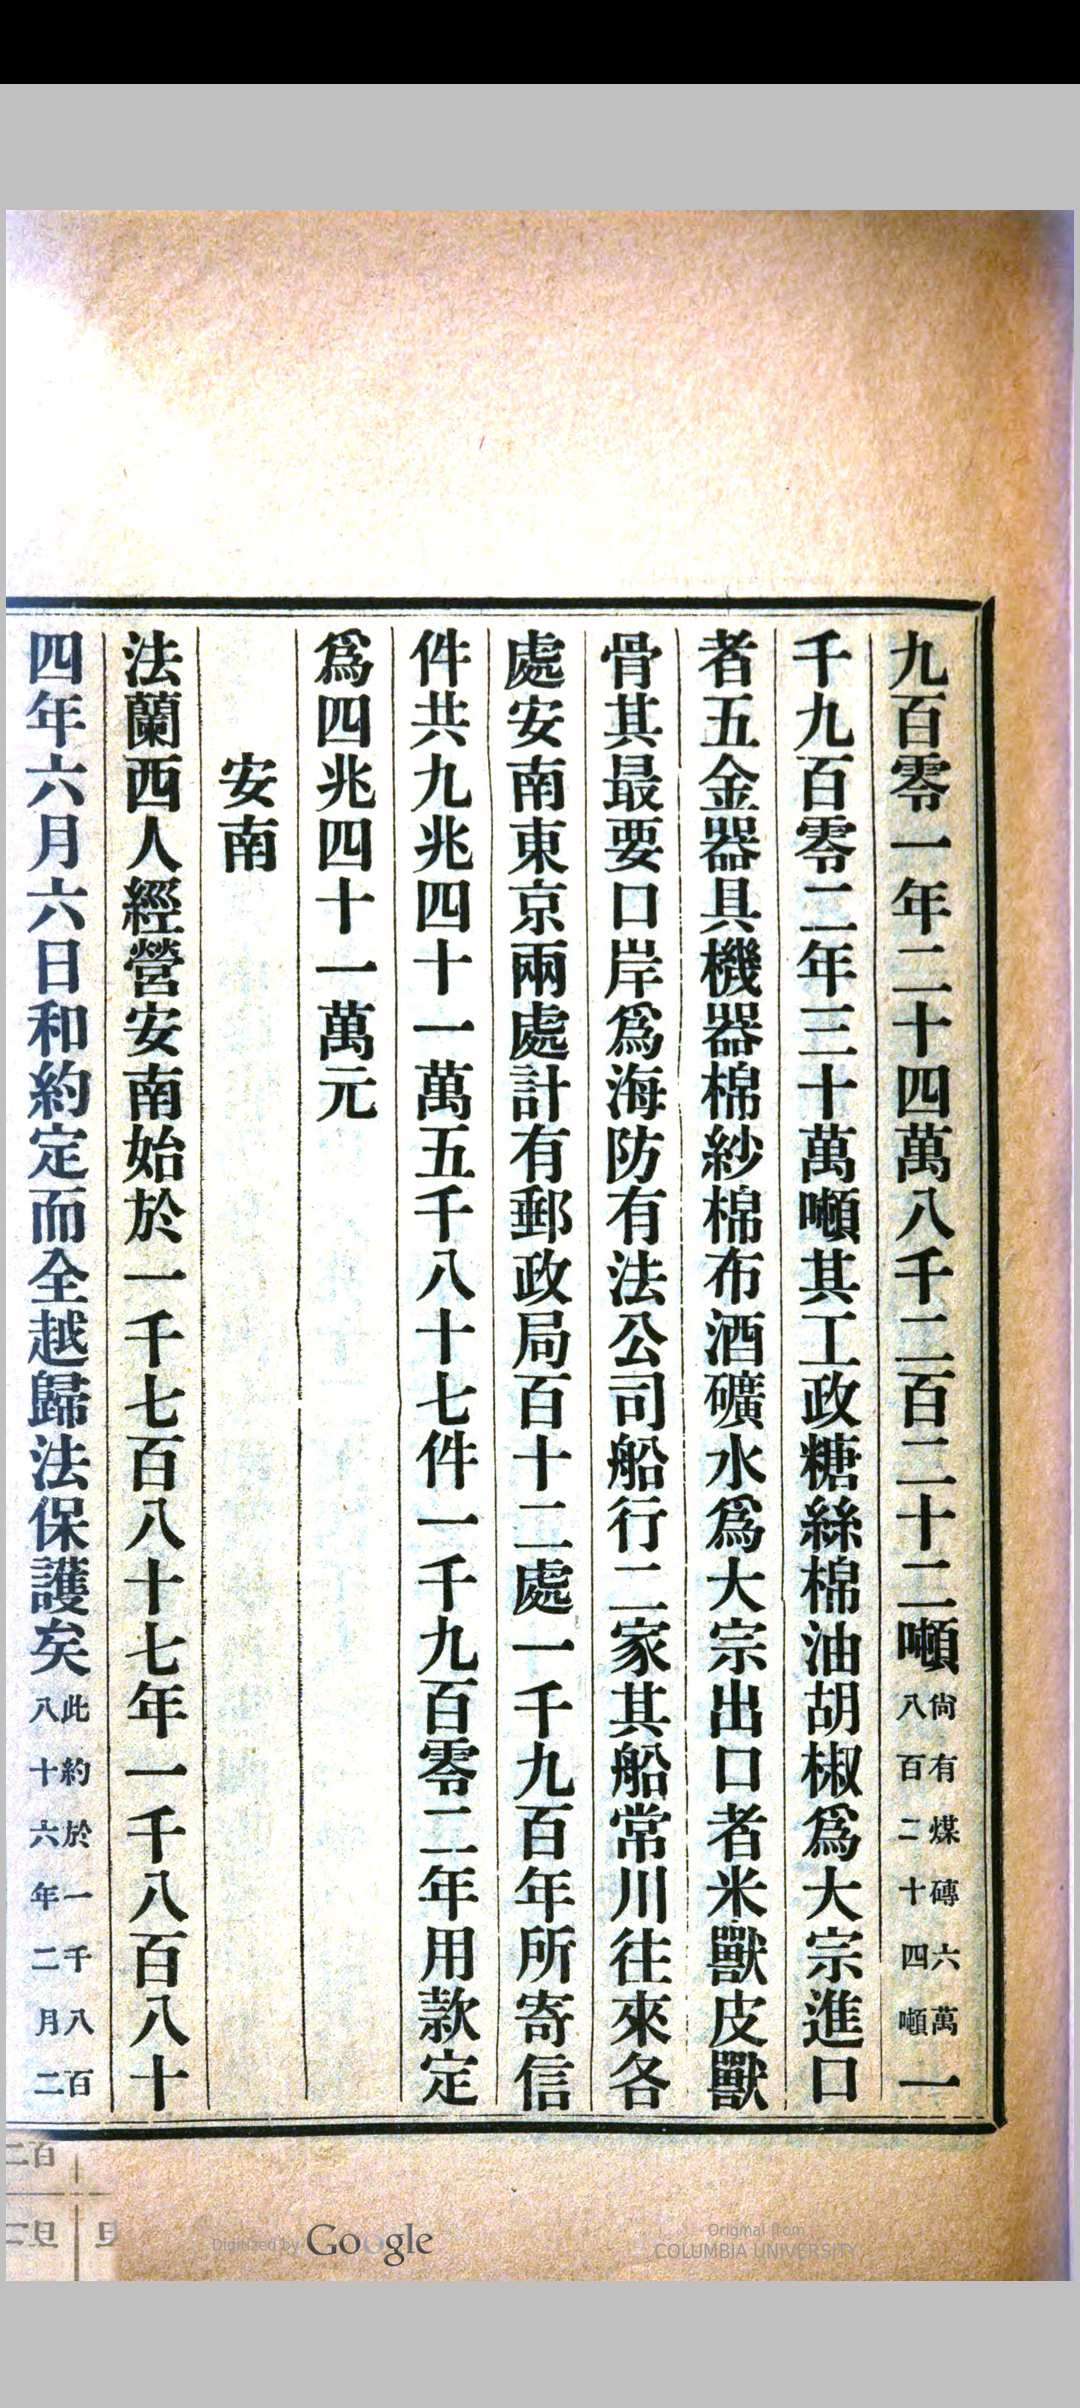 九百零一年二十四萬八千二百二十二噸尙有煤磚六萬八百二十四噸一
千九百零二年三十萬噸其工政糖絲棉油胡椒爲大宗進口
者五金器具機器棉紗棉布酒礦水爲大宗出口者米獸皮獸
骨其最要口岸爲海防有法公司船行二家其船常川往來各
處安南東京兩處計有郵政局百十二處一千九百年所寄信
件共九兆四十一萬五千八十七件一千九百零二年用款定
爲四兆四十一萬元
安南
法蘭西人經營安南始於一千七百八十七年一千八百八十
四年六月六日和約定而全越歸法保護矣此約於一千八百八十六年二月二
Digitized by Google
Original from
COLUMBIA UNIVERSITY